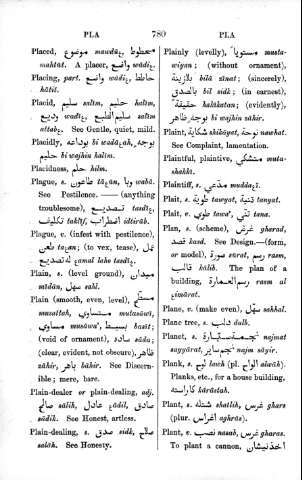 PLA
780
PLA
Placed, موضوع mawdūع, محطوط
mahtūt. A placer, واضع wādiع.
Placing, part. واضع wādiع, حاطط
hātit.
Placid, سليم salīm, حليم halīm,
وديع wadīع, سليم الطبع salīm
attabع. See Gentle, quiet, mild.
Placidly, بوداعه bi wadāعah, بوجه
حليم bi wajhin halīm.
Placidness, حلم hilm.
Plague, s. طاعون tāعūn, وبا wabā.
See Pestilence. — (anything
troublesome), تصديع tasdīع,
تكليف taklīf, اضطراب idtirāb.
Plague, v. (infest with pestilence),
طعن taعan; (to vex, tease), عمل
له تصديع عamal laho tasdīع.
Plain, s. (level ground), ميدان
mīdān, سهل sahl.
Plain (smooth, even, level), مسطح
musattah, متساوي mutasāwī,
مساوي musāwī, بسيط basīt;
(void of ornament), ساده sādū;
(clear, evident, not obscure), ظاهر
zāhir, باهر bāhir. See Discern-
ible; mere, bare.
Plain-dealer or plain-dealing, adj.
صالح sālih, عادل عādil, صادق
sādik. See Honest, artless.
Plain-dealing, s. صدق sidk, صلاح
salāh. See Honesty.
Plainly (levelly), مستويا musta-
wiyan; (without ornament),
بلا زينة bilā zīnat; (sincerely),
بالصدق bil sidk; (in earnest),
حقيقة hakīkatan; (evidently),
بوجه ظاهر bi wajhin zāhir.
Plaint, شكاية shikāyat, نوحة nawhat.
See Complaint, lamentation.
Plaintful, plaintive, متشكي muta-
shakkī.
Plaintiff, s. مدعي muddaعī.
Plait, s. طويه tawyat, ثنية tanyat.
Plait, v. طوي tawa', ثني tana.
Plan, s. (scheme), غرض gharad,
قصد kasd. See Design.—(form,
or model), صورة sūrat, رسم rasm,
قالب kālib. The plan of a
building, رسم العمارة rasm al
عimārat.
Plane, v. (make even), سهل sahhal.
Plane tree, s. دلب dulb.
Planet, s. نجمة سيارة najmat
sayyārat, نجم ساير najm sāyir.
Plank, s. لوح lawh (pl. الواح alwāh).
Planks, etc., for a house building,
كاراسته kārāstah.
Plant, s. شتله shatlih, غرس ghars
(plur. اغراس aghrās).
Plant, v. نصب nasab, غرس gharas.
To plant a cannon,